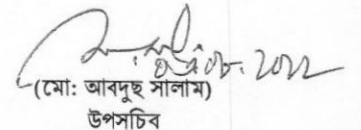 (মো: আবদুছ সালাম)
উপসচিব